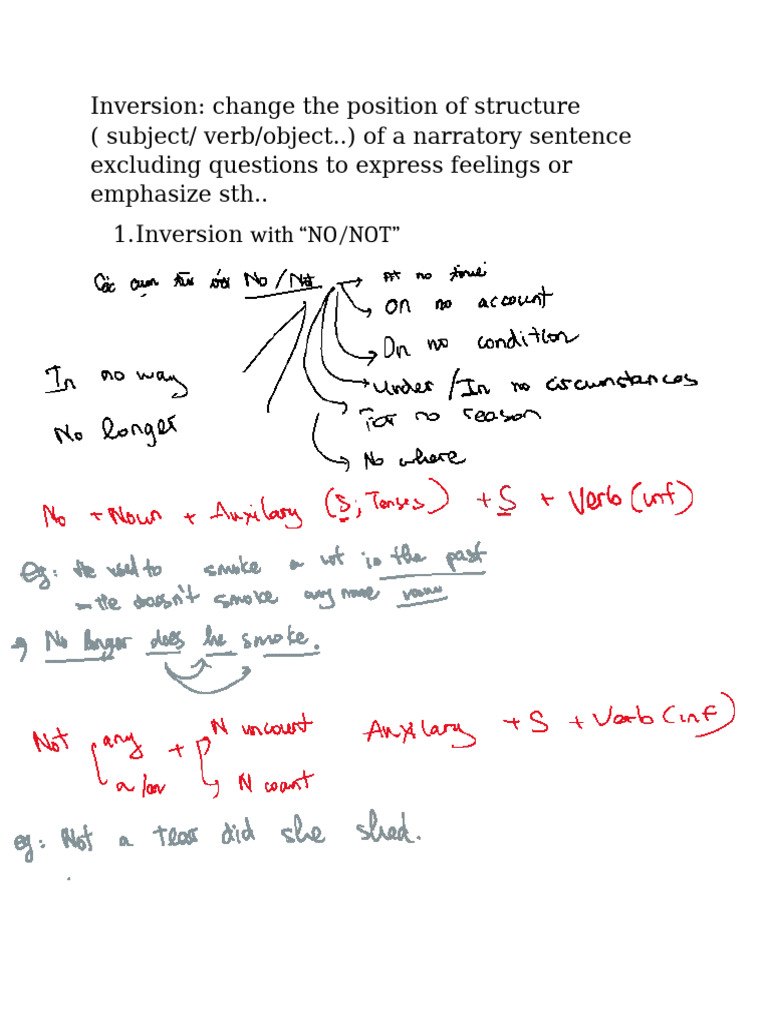 Inversion: change the position of structure
( subject/ verb/object..) of a narratory sentence
excluding questions to express feelings or
emphasize sth..
1.Inversion with “NO/NOT”
Các cụm từ với No/Not
At no time
On no account
On no condition
In no way
Under/In no circumstances
For no reason
No longer
No where
No + Noun + Auxilary (S; Tenses) + S + Verb (inf)
eg: He used to smoke a lot in the past
- He doesn't smoke any more
No longer does he smoke.
Not any + N uncount Auxilary + S + Verb (inf)
a/an N count
eg: Not a tear did she shed.